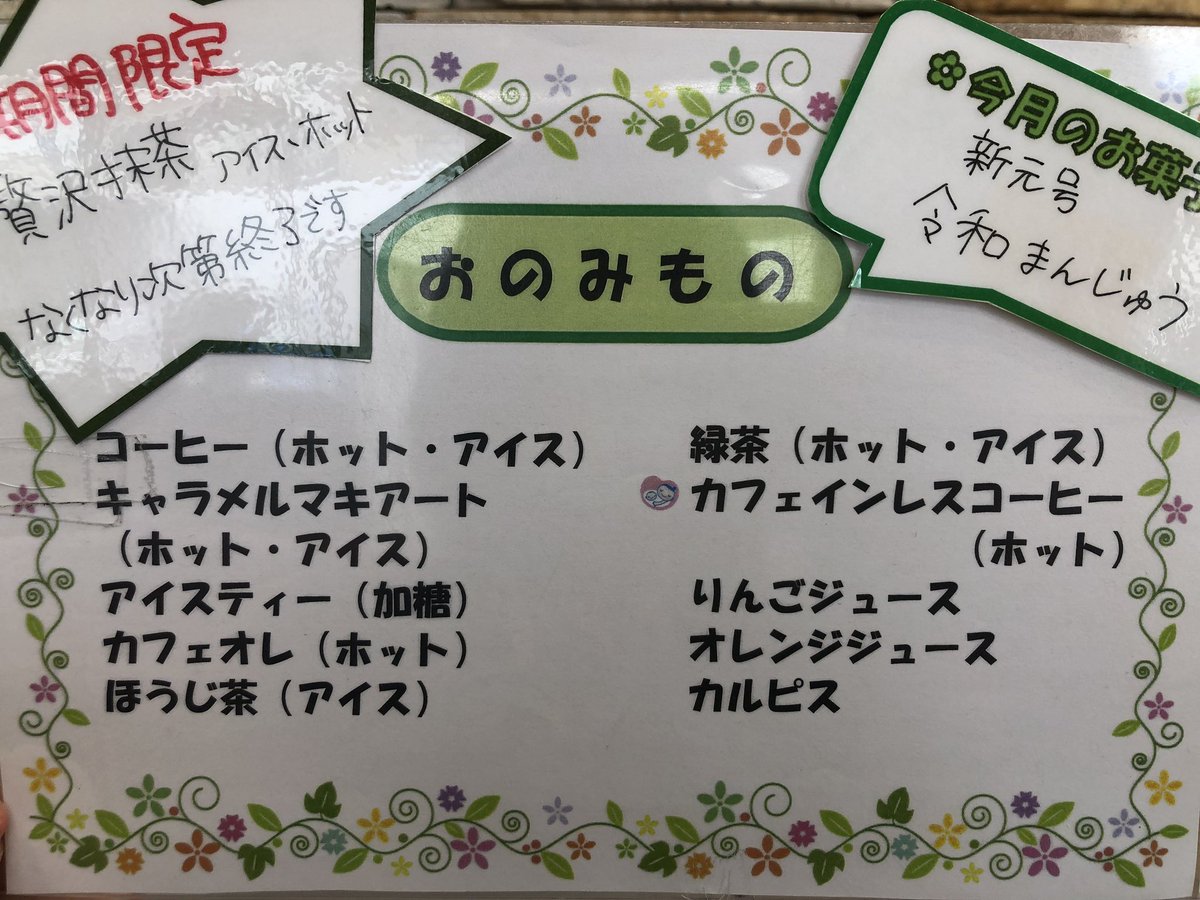 期間限定
贅沢抹茶 アイス、ホット
なくなり次第終了です
今月のお菓子
新元号
令和まんじゅう
おのみもの
コーヒー（ホット・アイス）
キャラメルマキアート
（ホット・アイス）
アイスティー（加糖）
カフェオレ（ホット）
ほうじ茶（アイス）
緑茶（ホット・アイス）
カフェインレスコーヒー
（ホット）
りんごジュース
オレンジジュース
カルピス